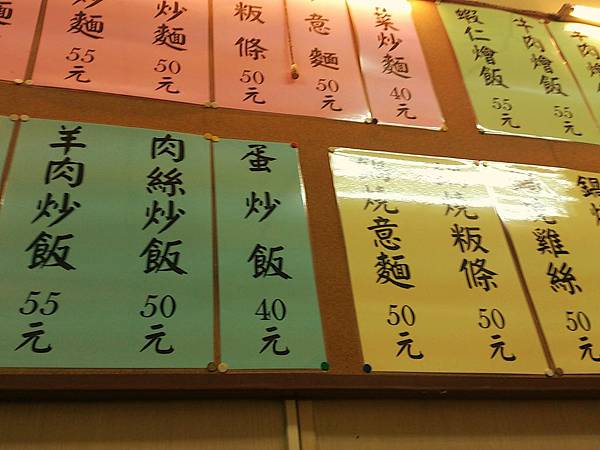 麵
炒麵 55元
炒麵 50元
粄條 50元
意麵 50元
菜炒麵 40元
蝦仁燴飯 55元
羊肉燴飯 55元
燴飯
羊肉炒飯 55元
肉絲炒飯 50元
蛋炒飯 40元
鍋燒意麵 50元
燒粄條 50元
雞絲 50元
鍋燒